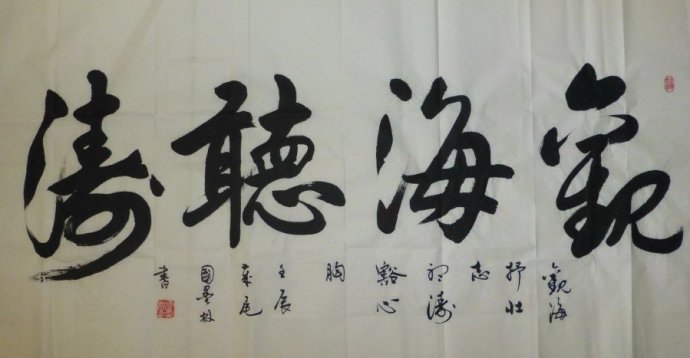 觀海聽濤
觀海
抒壯
志
聽濤
豁心
胸
壬辰
歲尾
國墨林
書